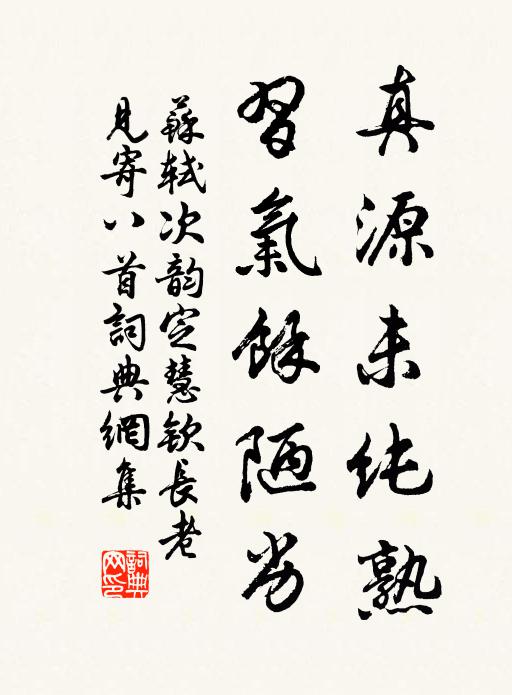 真源未纯熟
習氣餘陋劣
蘇軾次韵定慧欽長老
見寄八首詞典網集
詞典
网印